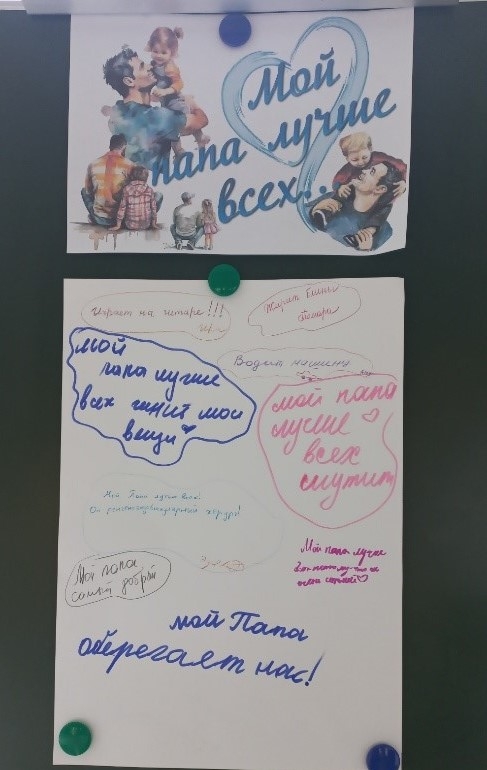 Мой
папа лучше
всех...
Играет на гитаре!!!
Жарит блины
Водит машину
мой
папа лучше
всех чинит мои
вещи
мой папа
лучше
всех
шутит
Мой Папа лучше всех!
Он
Мой папа
самый добрый
Мой папа лучше
мой Папа
оберегает нас!